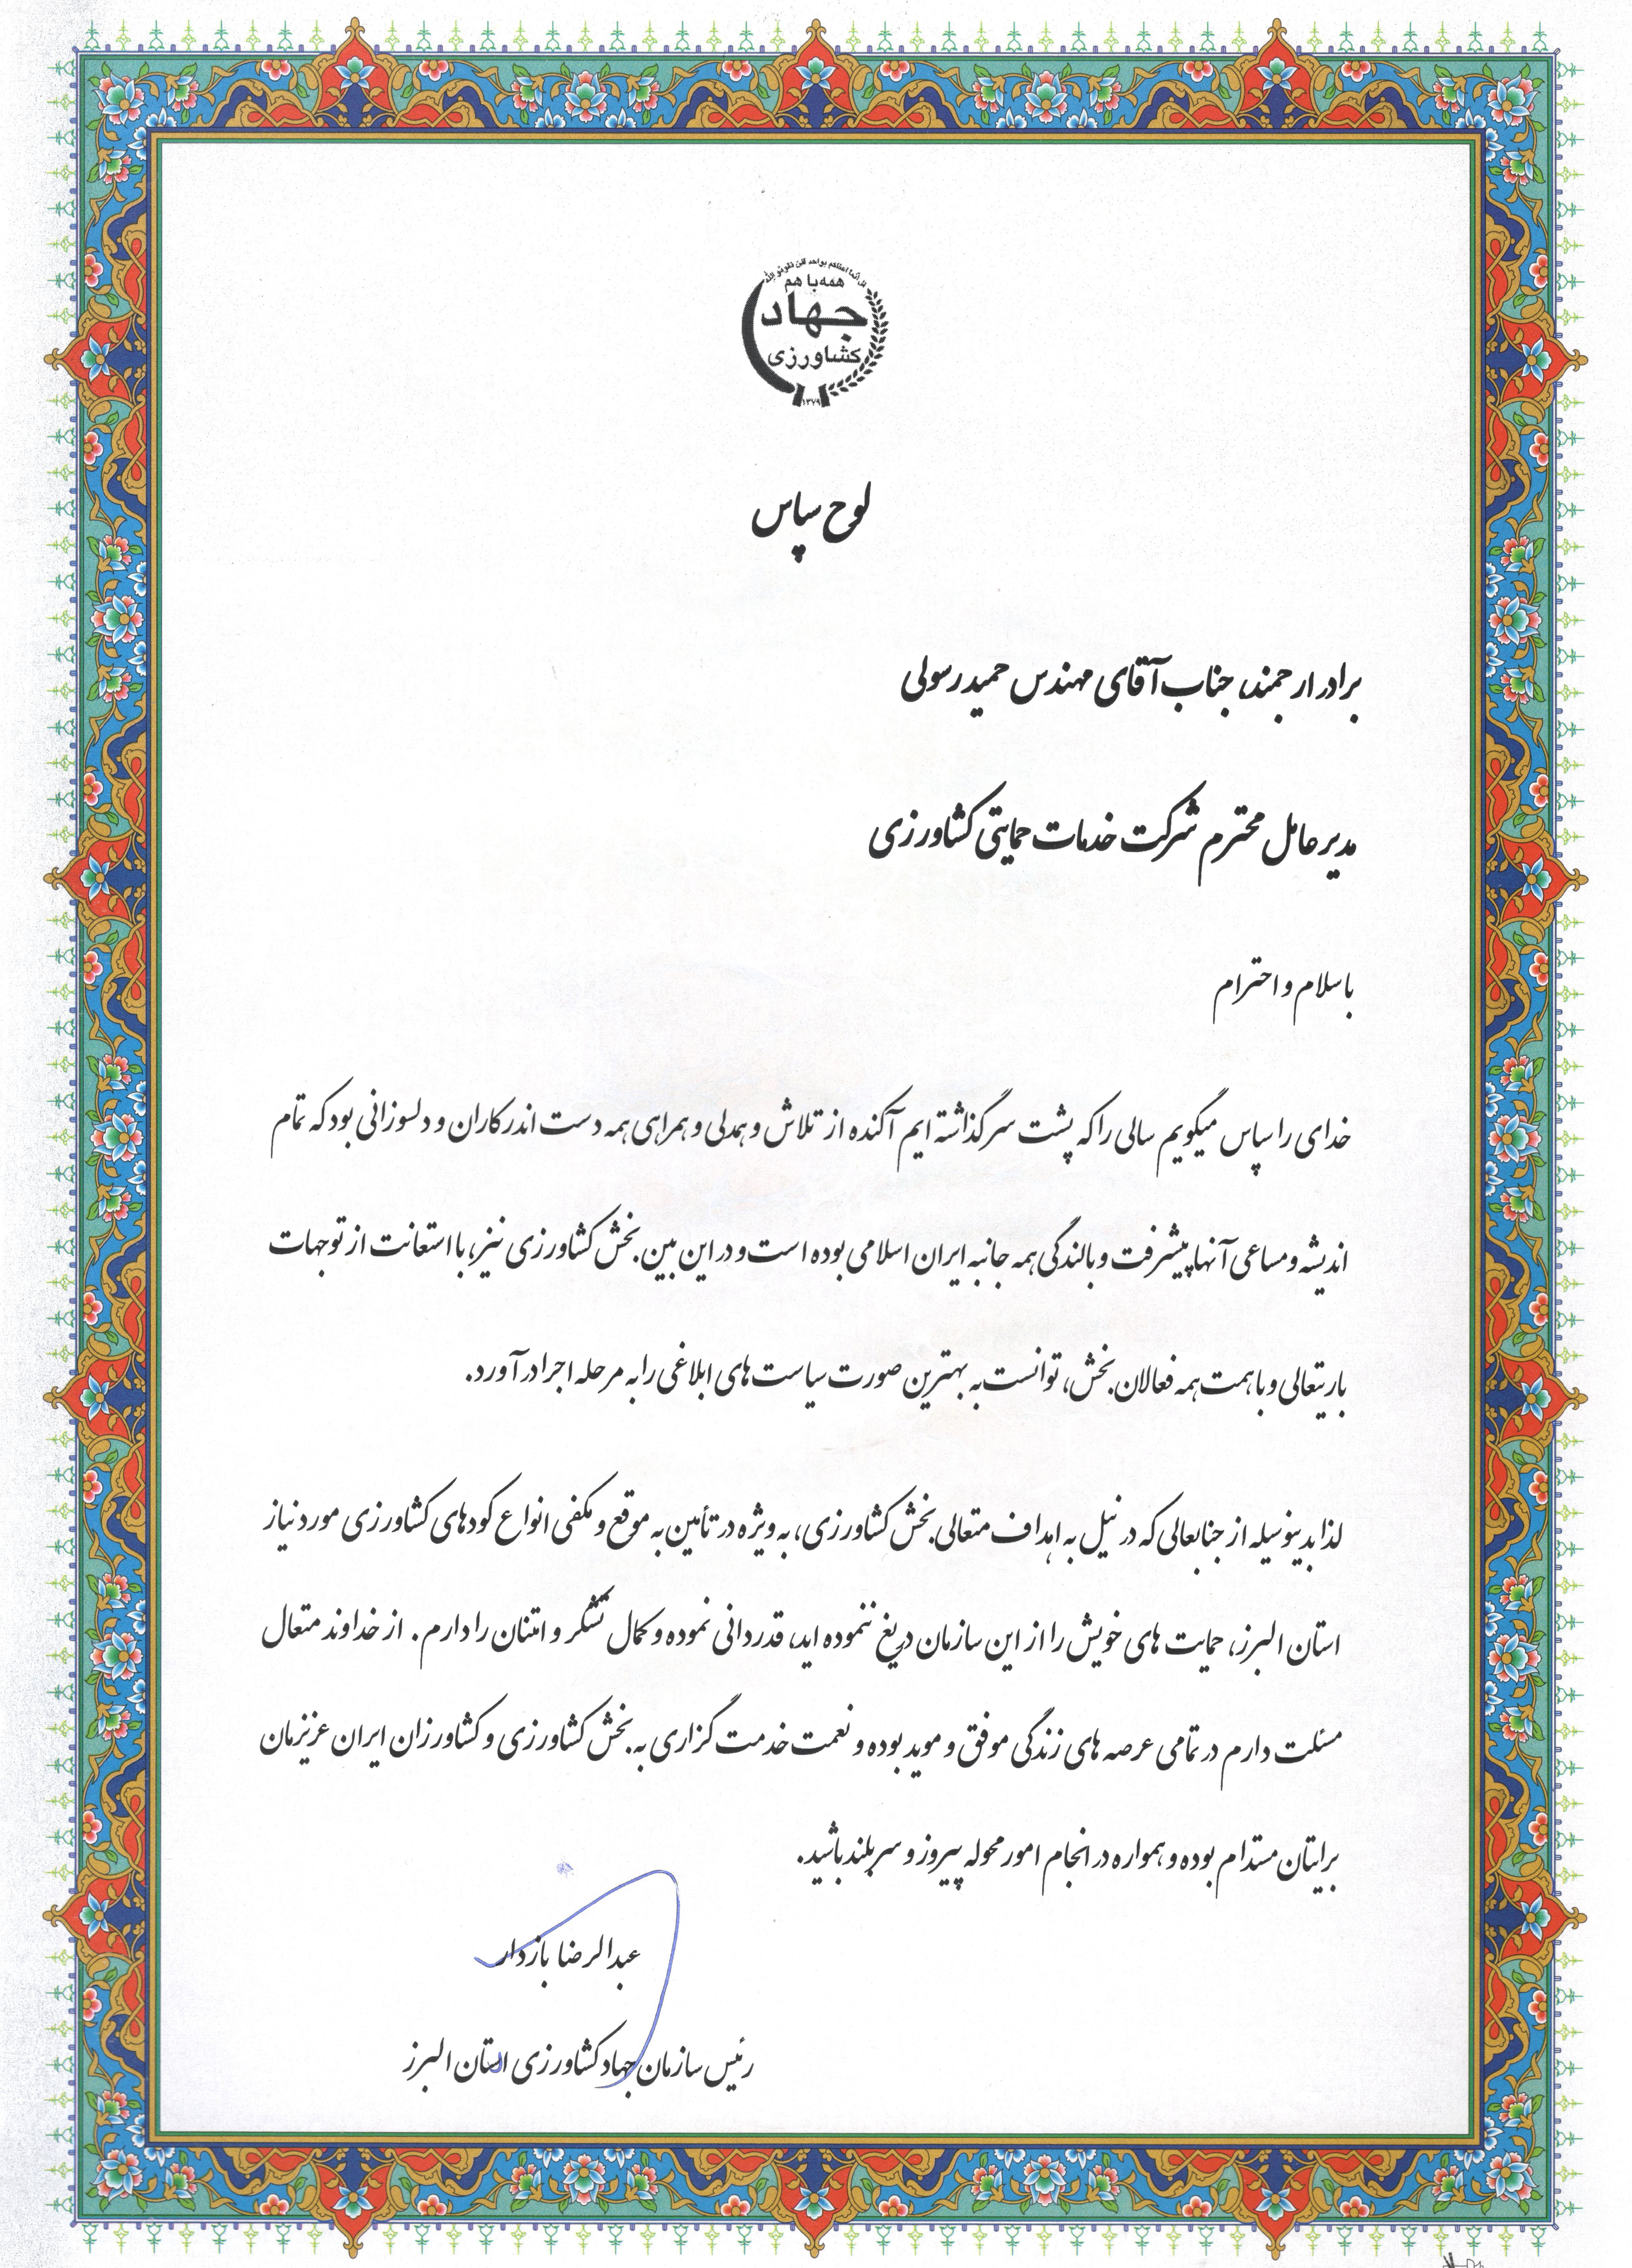 همه با هم
جهاد
کشاورزی
۱۳۷۹
لوح سپاس
برادر ارجمند، جناب آقای مهندس حمید رسولی
مدیرعامل محترم شرکت خدمات حمایتی کشاورزی
با سلام و احترام
خدای را سپاس میگویم سالی را که پشت سر گذاشته ایم آکنده از تلاش و همدلی و همراهی همه دست اندرکاران و دلسوزانی بود که تمام
اندیشه و مساعی آنها پیشرفت و بالندگی همه جانبه ایران اسلامی بوده است و در این بین بخش کشاورزی نیز، با استعانت از توجهات
باریتعالی و با همت همه فعالان بخش، توانست به بهترین صورت سیاست های ابلاغی را به مرحله اجرا درآورد.
لذا بدینوسیله از جنابعالی که در نیل به اهداف متعالی بخش کشاورزی، به ویژه در تأمین به موقع و مکفی انواع کودهای کشاورزی مورد نیاز
استان البرز، حمایت های خویش را از این سازمان دریغ ننموده اید، قدردانی نموده و کمال تشکر و امتنان را دارم. از خداوند متعال
مسئلت دارم در تمامی عرصه های زندگی موفق و موید بوده و نعمت خدمت گزاری به بخش کشاورزی و کشاورزان ایران عزیزمان
برایتان مستدام بوده و همواره در انجام امور محوله پیروز و سربلند باشید.
عبدالرضا بازدار
رئیس سازمان جهاد کشاورزی استان البرز